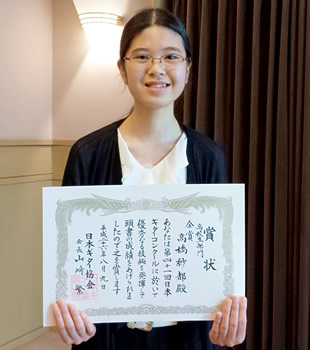 賞状
高校生部門
金賞
高橋紗都殿
あなたは第四十一回日本
ギターコンクールに於いて
優秀なる技術を発揮して
頭書の成績をあげられま
したので之を賞します
平成二十六年八月九日
日本ギタイ協会
会長 山﨑 繁